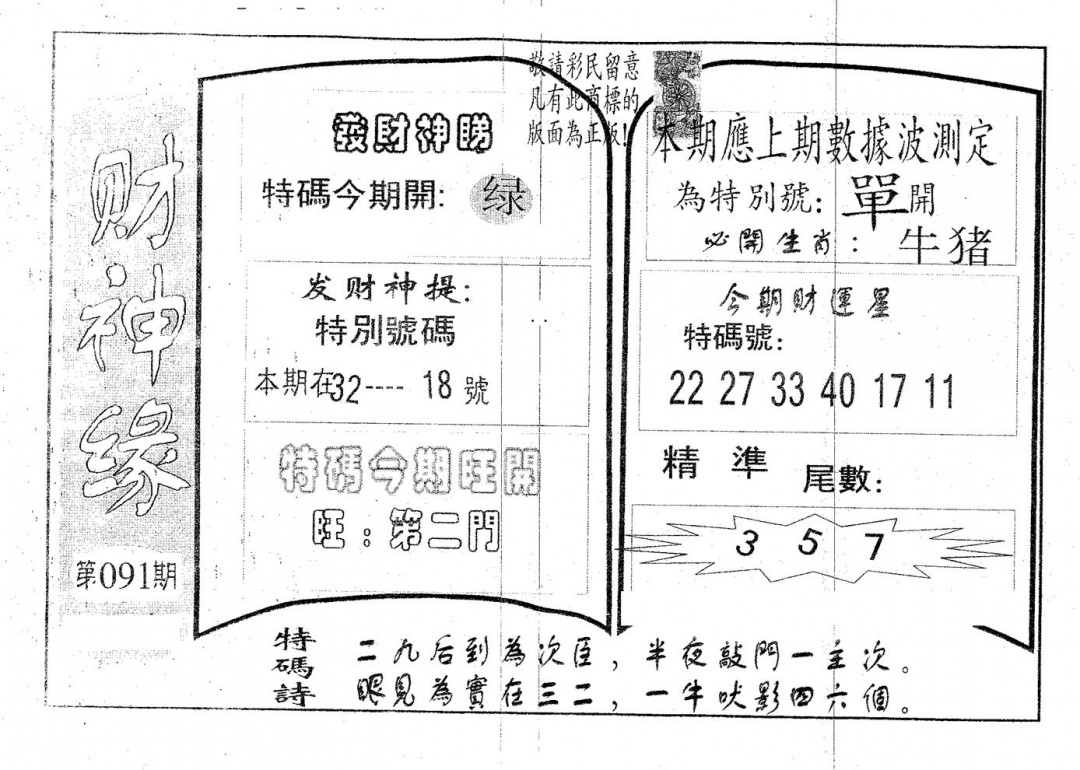 财神缘
第091期
敬請彩民留意
凡有此商標的
版面為正版!
發財神睇
特碼今期開: 绿
发财神提:
特別號碼
本期在32----18號
特碼今期旺開
旺:第二門
本期應上期數據波測定
為特別號:單開
必開生肖: 牛猪
今期財運星
特碼號:
22 27 33 40 17 11
精準 尾數:
3 5 7
特碼詩
二九后到為次臣,半夜敲門一主次。
眼見為實在三二,一牛吠影四六個。